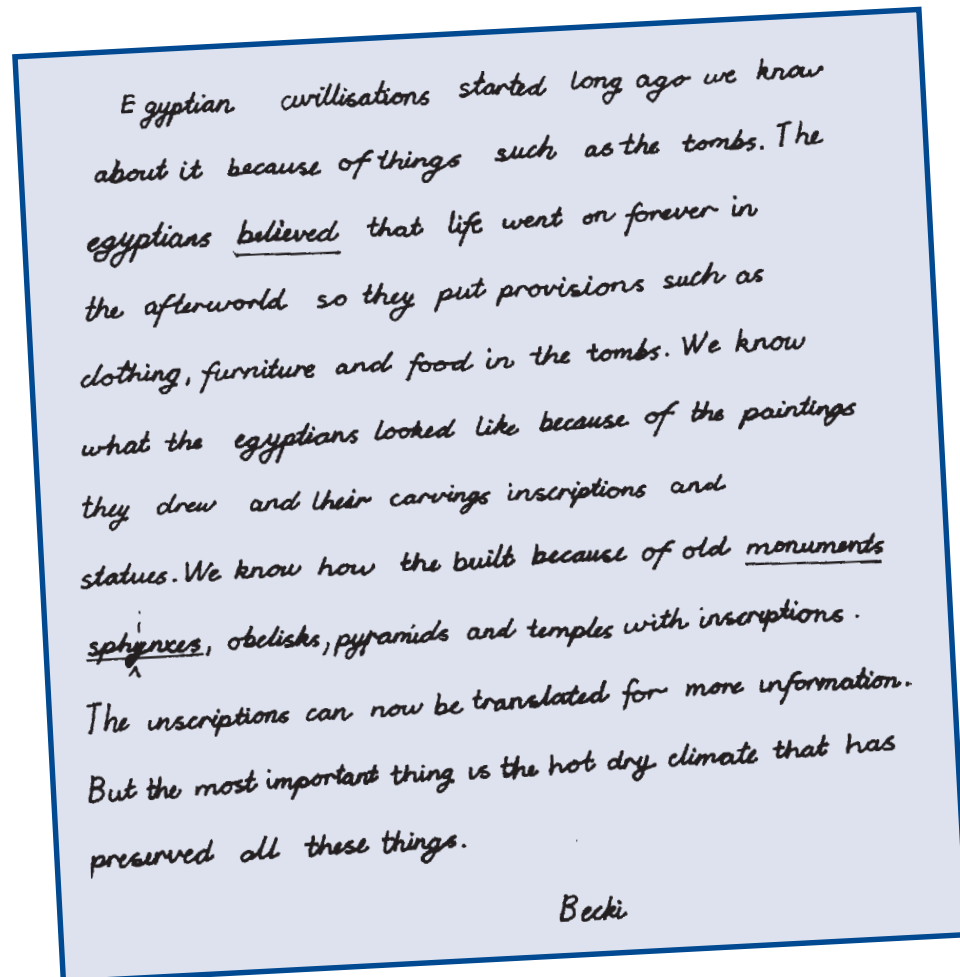 Egyptian civillisations started long ago we know
about it because of things such as the tombs. The
egyptians believed that life went on forever in
the afterworld so they put provisions such as
clothing, furniture and food in the tombs. We know
what the egyptians looked like because of the paintings
they drew and their carvings inscriptions and
statues. We know how the built because of old monuments
sphinxes, obelisks, pyramids and temples with inscriptions.
The inscriptions can now be translated for more information.
But the most important thing is the hot dry climate that has
preserved all these things.
Becki